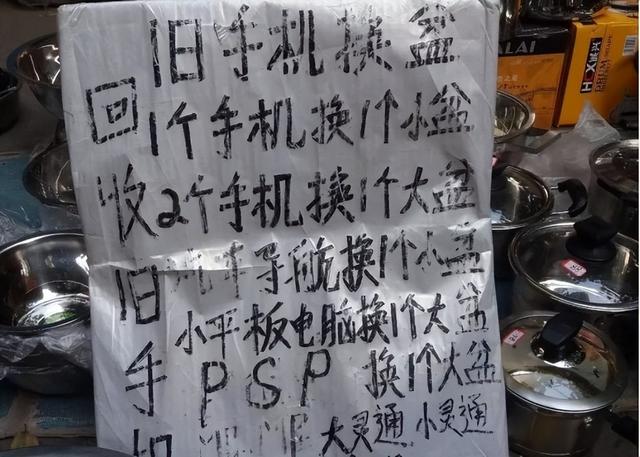 旧手机换盆
1个手机换1个小盆
2个手机换1个大盆
汽车导航换1个小盆
小平板电脑换1个大盆
PSP 换1个大盆
大灵通 小灵通
回收旧手机
ALAI